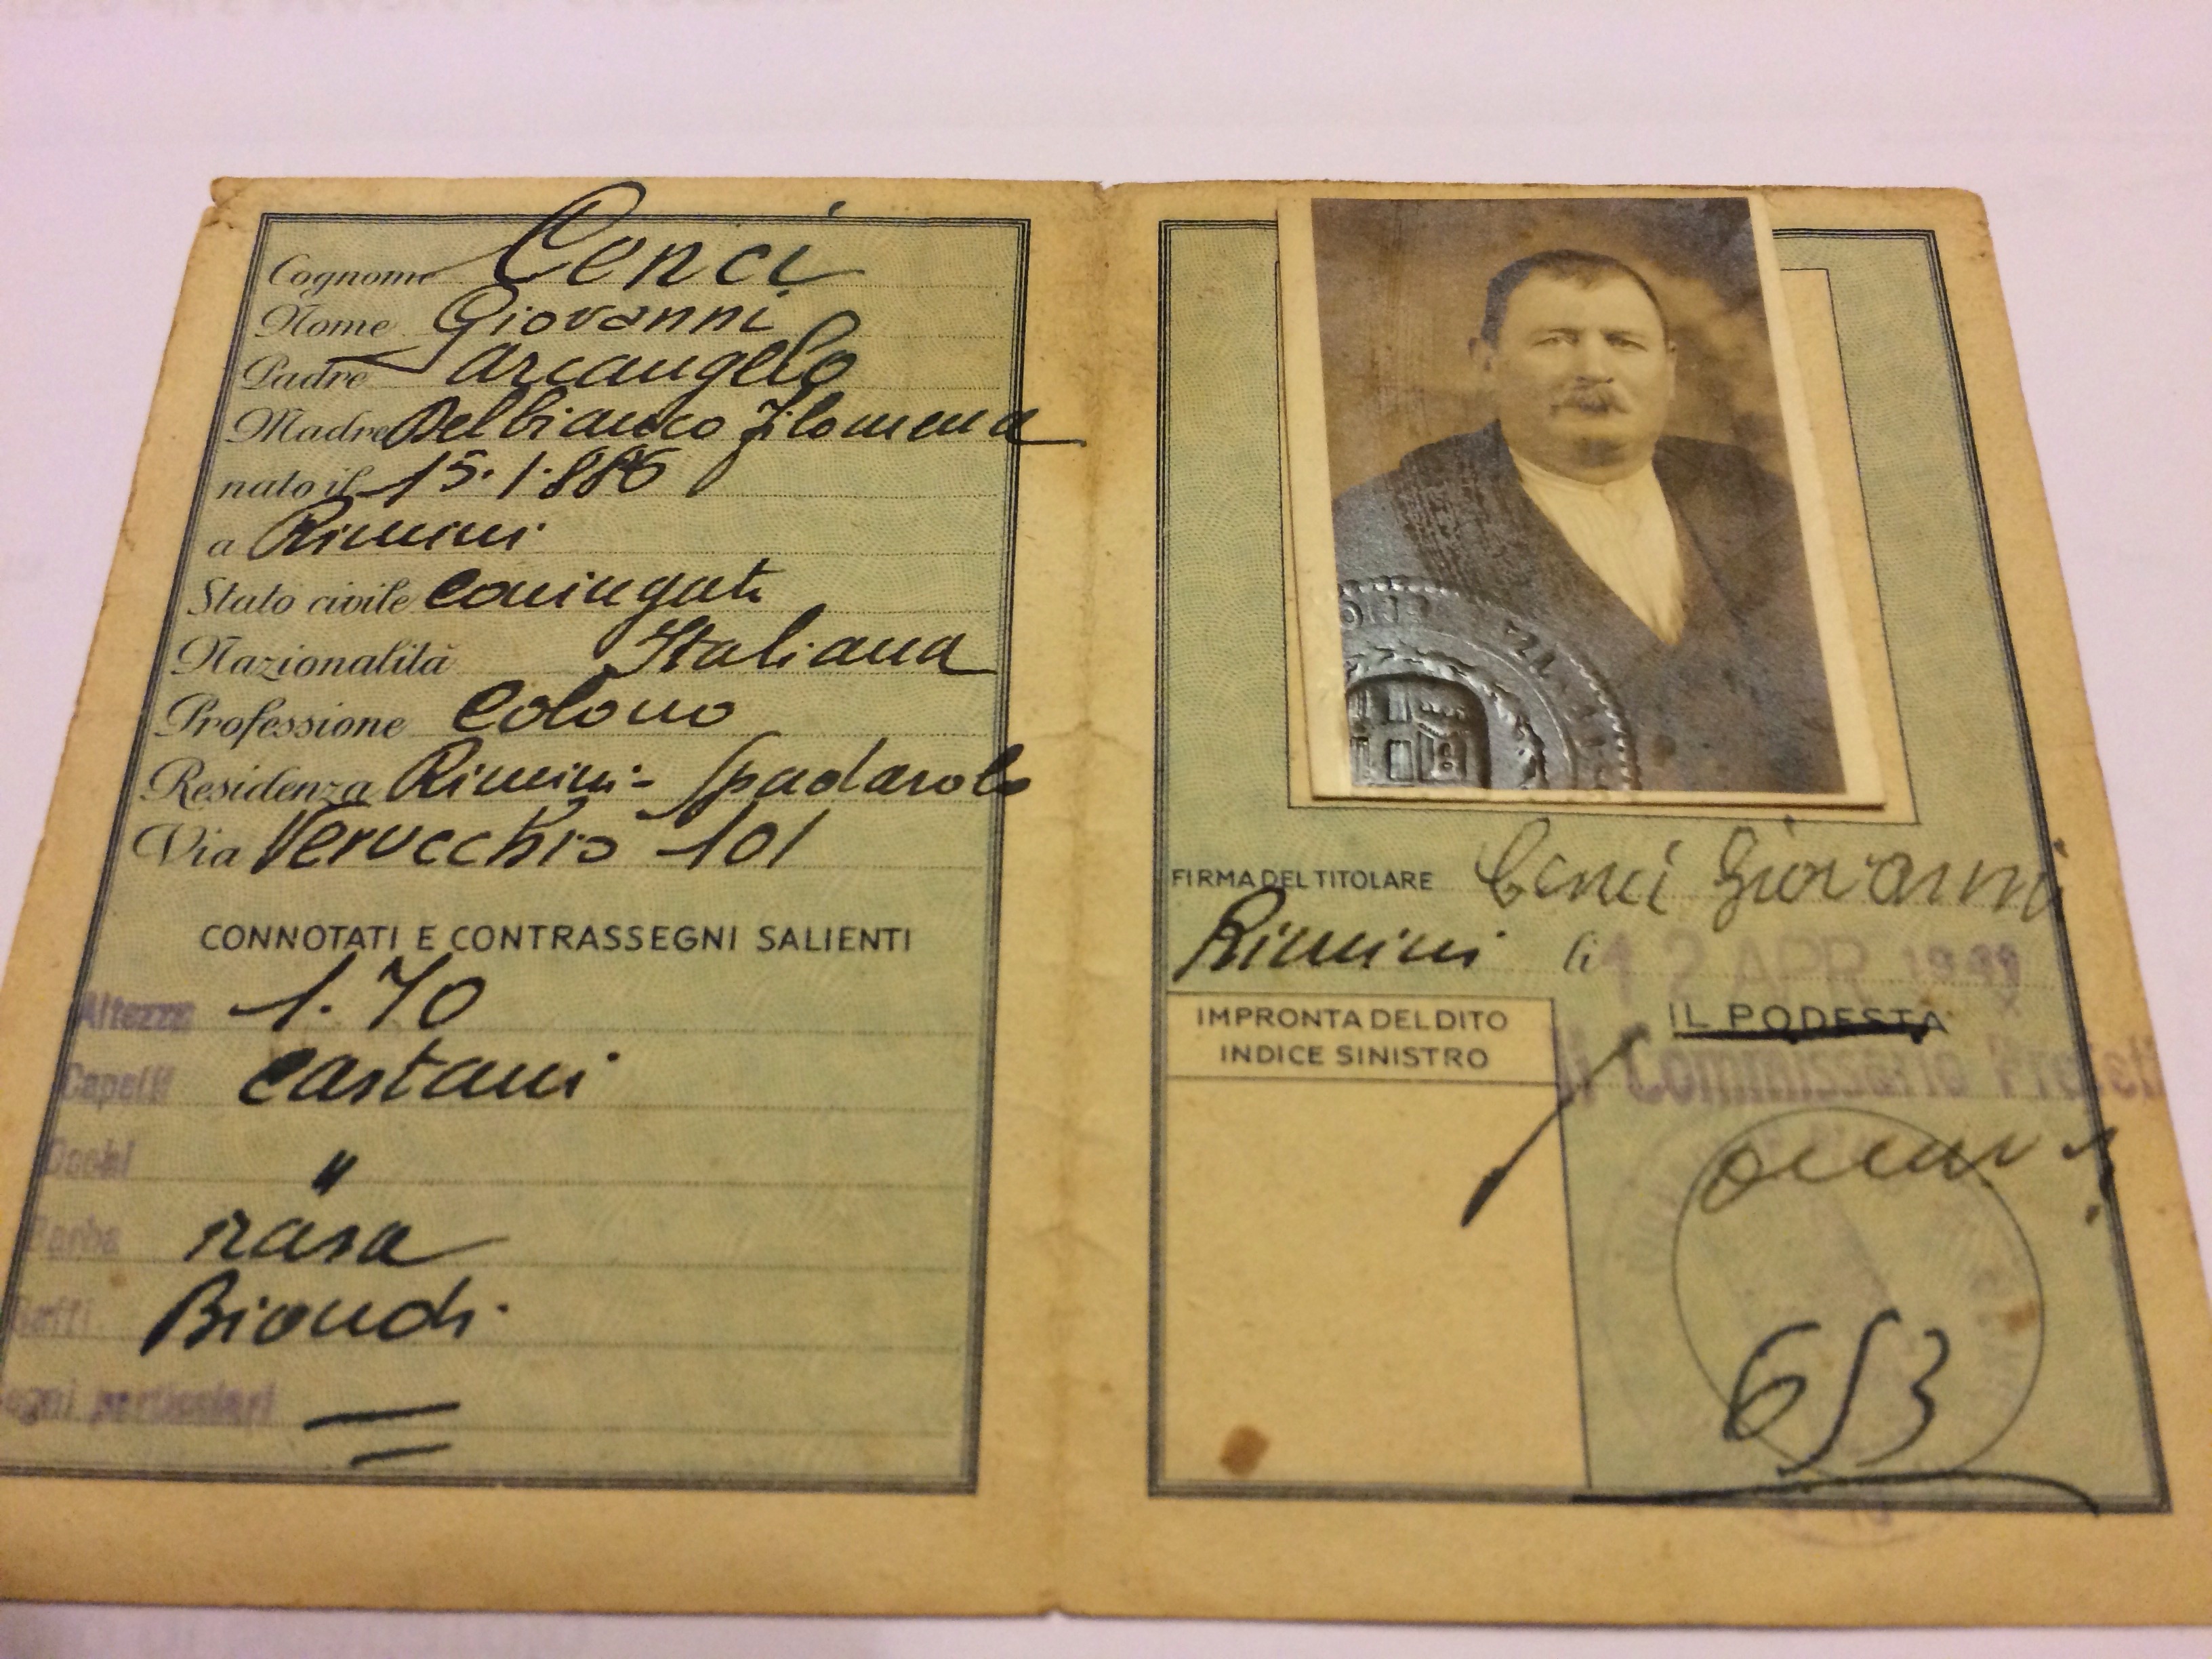 Cognome Cenci
Nome Giovanni
Padre Arcangelo
Madre Delbianco Filomena
nato il 15.1.886
a Rimini
Stato civile coniugato
Nazionalità Italiana
Professione Colono
Residenza Rimini - Spadarolo
Via Verucchio 101
CONNOTATI E CONTRASSEGNI SALIENTI
Altezza 1.70
Capelli castani
Occhi "
Barba rasa
Baffi Biondi.
segni particolari =
FIRMA DEL TITOLARE Cenci Giovanni
Rimini li 12 APR
IL PODESTA
Il Commissario Prefett
IMPRONTA DEL DITO
INDICE SINISTRO
653